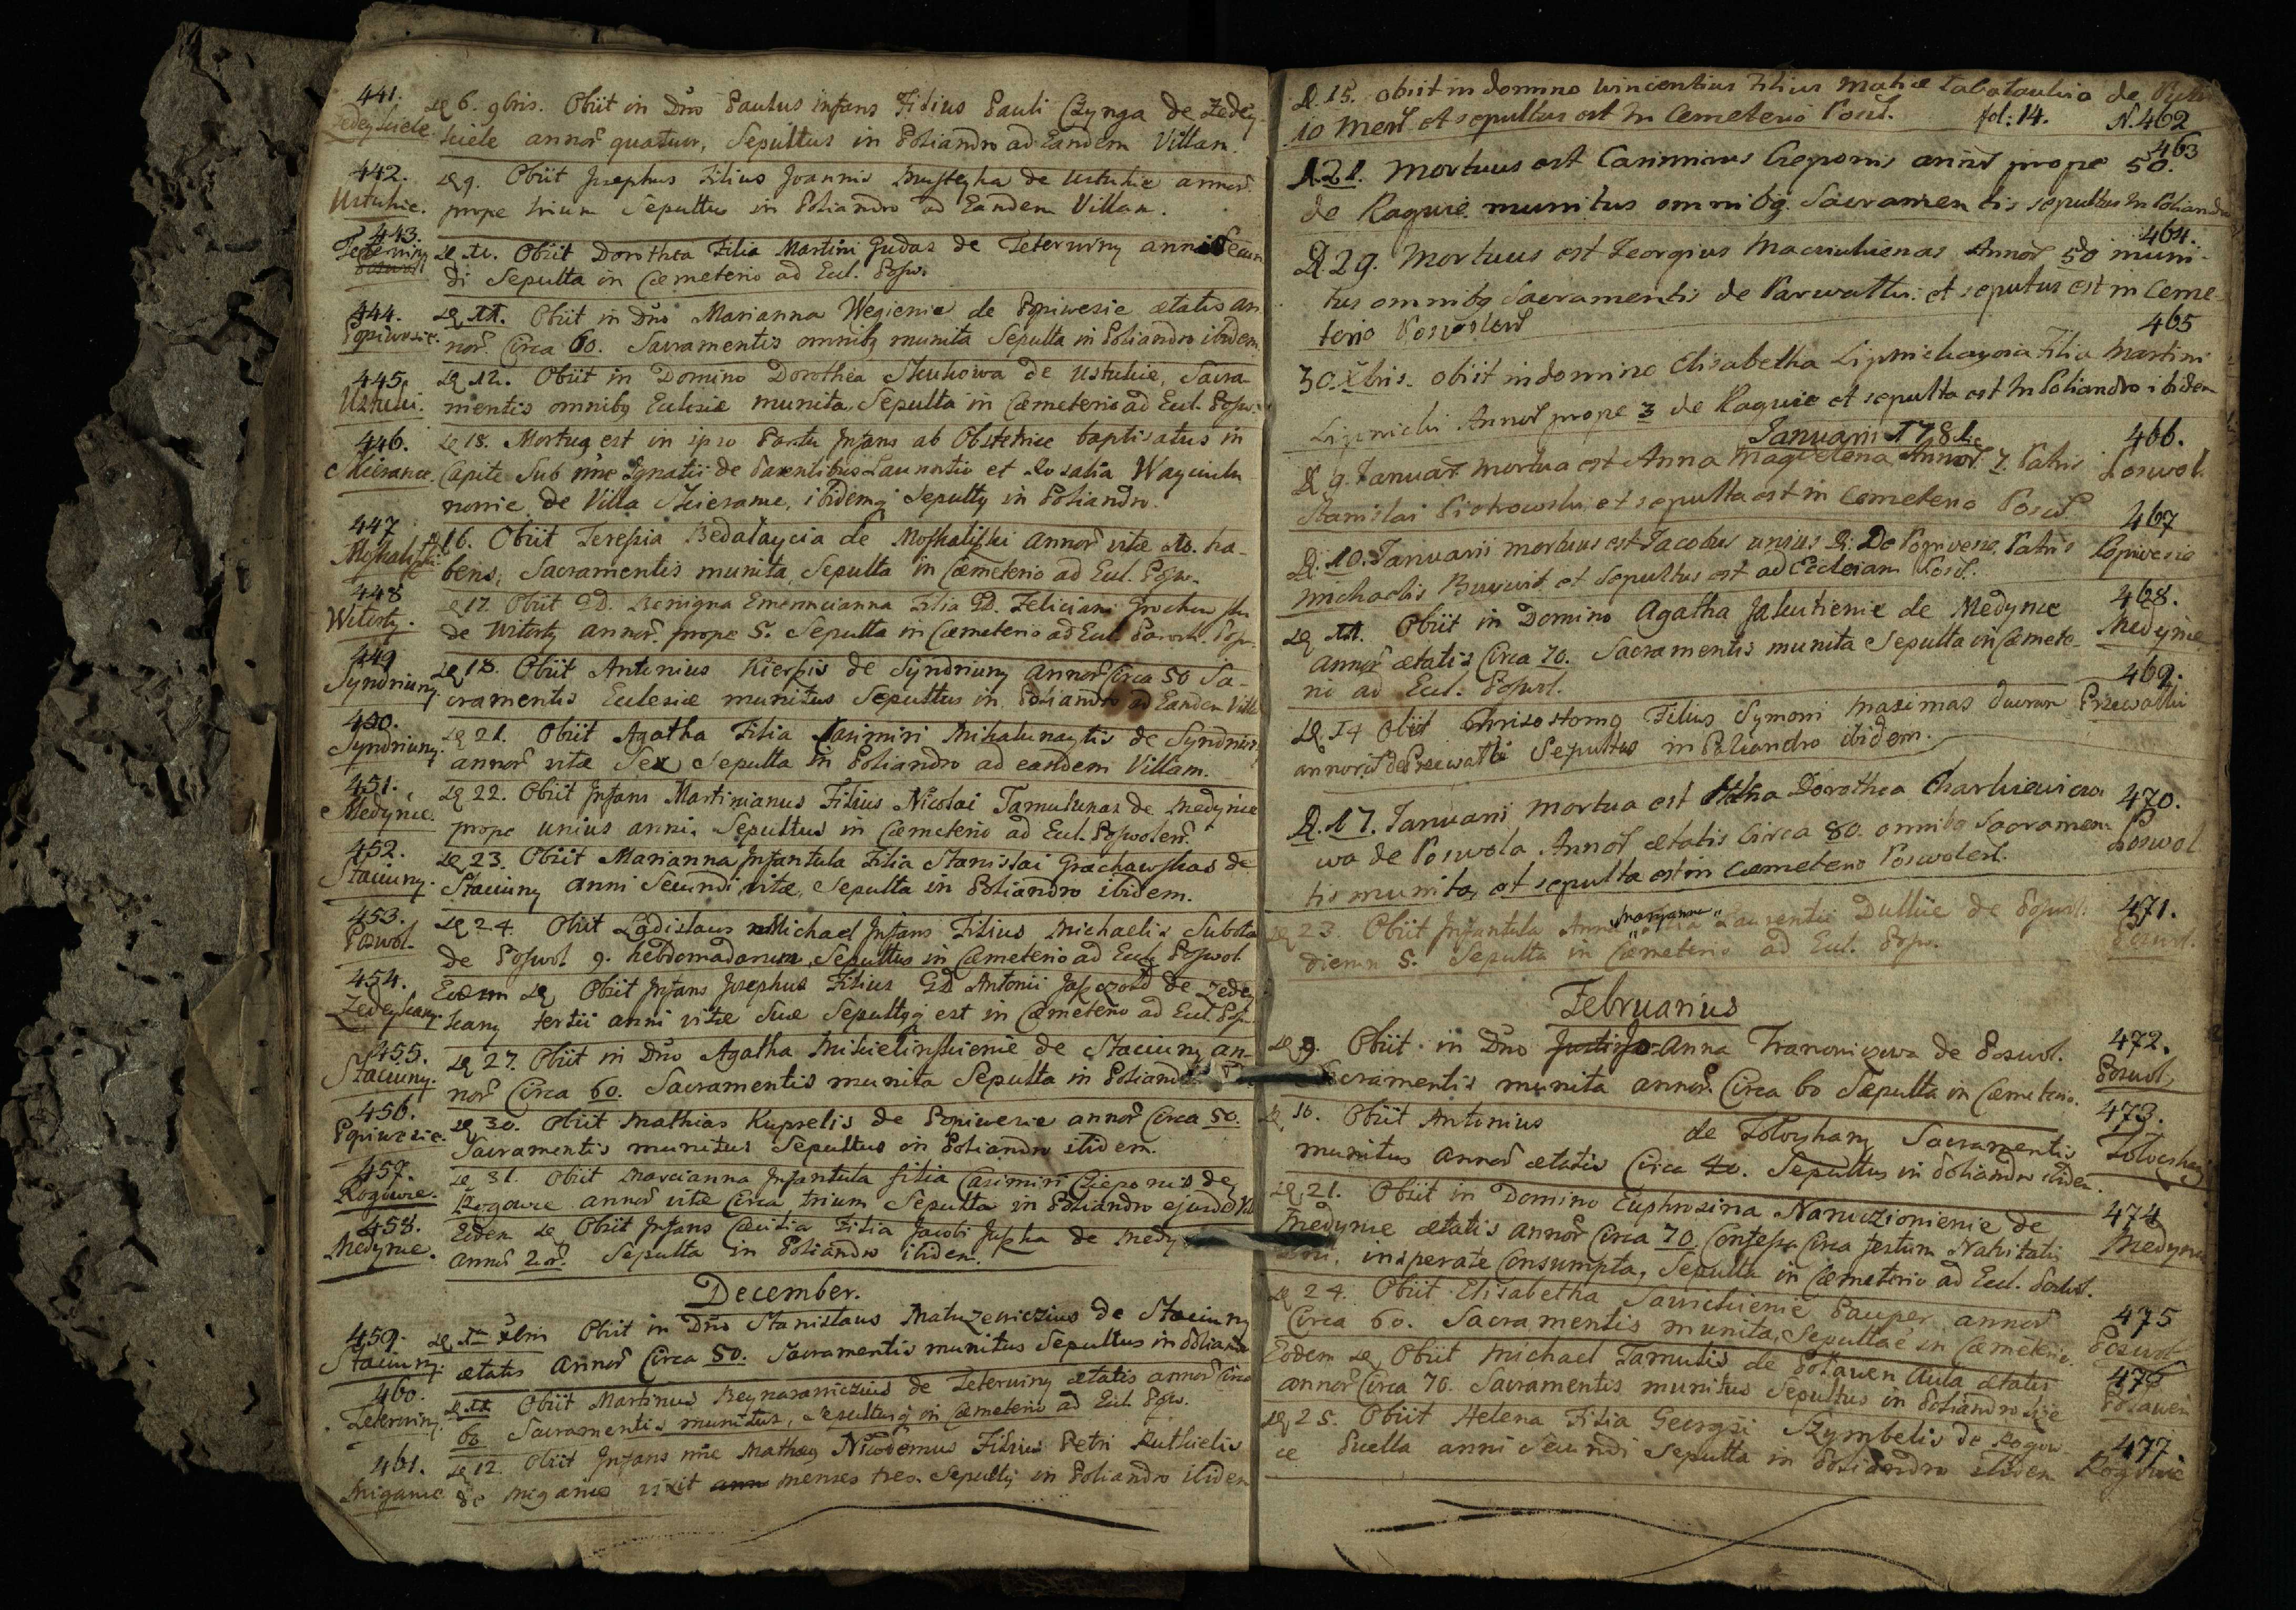 441.
Zedeykiele.
D 6. 9bris. Obiit in Dño Paulus infans Filius Pauli Czynga de Zedey-
kiele annor̃ quatuor, Sepultus in Poliandro ad Eandem Villam.
442.
Ustukie.
D 9. Obiit Josephus Filius Joannis de Ustukie annor̃
prope trium Sepultus in Poliandro ad Eandem Villam.
443.
Teterwiny
D 11. Obiit Dorothea Filia Martini Gudas de Teterwiny anni Secun
di Sepulta in Cæmeterio ad Eccl. Posw.
444.
Popiwesie.
D 11. Obiit in Dño Marianna Wegienie de Popiwesie ætatis an
nor̃ Circa 60. Sacramentis omnibq munita Sepulta in Poliandro ibidem
445.
Ustuki.
D 12. Obiit in Domino Dorothea de Ustukie, Sacra-
mentis omnibq Eclesiæ munita, Sepulta in Cæmeterio ad Eccl. Posw.
446.
D 18. Mortuq est in ipso Partu Infans ab Obstetrice baptisatus in
Capite Sub nne Ignatii de Parentibus Laurentio et Rosalia
de Villa ibidemq Sepultq in Poliandro.
447
Moskaliszki
16. Obiit Teressia Bedalaycia de Moskaliszki annor̃ vitæ 40. ha-
bens, Sacramentis munita, Sepulta in Cæmeterio ad Eccl. Posw.
448
Witarty.
D 17. Obiit GD. Benigna Emerencianna Filia GD. Feliciani
de Witarty annor̃. prope 5. Sepulta in Cæmeterio ad Eccl. Paroch. Posw.
449
Syndriuny.
D 18. Obiit Antonius Kierpis de Syndriuny annor̃ Circa 50 Sa-
cramentis Eclesiæ munitus Sepultus in Poliandro ad Eandem Vill
450.
Syndriuny.
D 21. Obiit Agatha Filia Casimiri Mikalunaytis de Syndriun
annor̃ vitæ Sex Sepulta in Poliandro ad eandem Villam.
451.
Medynie.
D 22. Obiit Infans Martinianus Filius Nicolai Tamulunas de Medynie
prope unius anni, Sepultus in Cæmeterio ad Eccl. Poswolen̄.
452.
Staciuny.
D 23. Obiit Marianna Infantula Filia Stanislai Grachawskas de
Staciuny anni Secundi vitæ, Sepulta in Poliandro ibidem.
453.
Poswol.
D 24. Obiit Ladislaus Michael Infans Filius Michaelis Subota
de Poswol 9. hebdomadarum, Sepultus in Cæmeterio ad Eccl. Poswol
454.
Zedeykany.
Eodem D Obiit Infans Josephus Filius GD Antonii de Zedey
kany tertii anni vitæ Suæ Sepultqq est in Cæmeterio ad Eccl. Posw
455.
Staciuny.
D 27. Obiit in Dño Agatha Mikielinskienie de Staciuny an-
nor̃ Circa 60. Sacramentis munita Sepulta in Poliandro
456.
Popiwesie.
D 30. Obiit Mathias Kuprelis de Popiwesie annor̃ Circa 50.
Sacramentis munitus Sepultus in Poliandro ibidem.
457.
Rogowie.
D 31. Obiit Marcianna Infantula filia Casimiri Czieponis de
Rogowie annor̃ vitæ Circa trium Sepulta in Poliandro ejusdem
458.
Medynie.
Eodem D Obiit Infans Cæcilia Filia Jacobi de Medy
annor̃ 2or̃. Sepulta in Poliandro ibidem.
December.
459.
Staciuny.
D 1 Xbris Obiit in Dño Stanislaus Matuzewiczius de Staciuny
ætatis annor̃ Circa 50. Sacramentis munitus Sepultus in Poliandr
460.
Teterwiny.
D 11 Obiit Martinus Reynarawiczius de Teterwiny ætatis annor̃ Circa
60 Sacramentis munitus, Sepultusq in Cæmeterio ad Eccl. Posw.
461.
Miganie
D 12. Obiit Infans nne Mathæq Nicodemus Filius Petri Rutkielis
de Miganie vixit menses tres. Sepultq in Poliandro ibidem
D. 15. obiit in domino Vincentius Filius Mathiæ de
10 Mens̃ et sepultus est in Cemeterio Posv̄. fol: 14. N. 462
463
D. 21. Mortuus est Casimirus Czeponis annor̃ prope 50.
de Raguwie munitus omnibq. Sacramentis sepultus in Poliandro
464.
D. 29. Mortuus est Georgius Annor̃ 50 muni-
tus omnibq Sacramentis de Parwalki: et sepultus est in Ceme-
terio
465
30. Xbris. obiit in domino Elisabetha Filia Martini
Lipnicki Annor̃ prope 3 de Raguwie et sepulta est in Poliandro ibidem
Januarii 178
466.
Poswol.
D 9. Januar̃. Mortua est Anna Magdelena Annor̃. 7. Patris
Stanislai Piotrowski, et sepulta est in Cemeterio Posvl̃.
467
Popiwesie
D. 10. Januarii mortuus est Jacobus unius D. De Popiwesie. Patris
Michaelis et Sepultus est ad Ecclesiam Posvl.
468.
Medynie
D 11. Obiit in Domino Agatha Jakutienie de Medynie
annor̃ ætatis Circa 70. Sacramentis munita Sepulta in Cæmete-
rii ad Eccl. Poswol.
469.
Przewalki
D. 14 Obiit Chrisostomq Filius Symoni Masimas
de Przewalki Sepultus in Poliandro ibidem.
470.
Poswol
D. 17. Januarii mortua est Dorothea
wa de Poswola Annor̃ ætatis Circa 80. omnibq Sacramen-
tis munita, et sepulta est in cæmeterio Poswolens̃.
471.
Poswol.
D 23. Obiit Infantula Anna „Marjanna„ Filia Laurentii Dullie de Poswol.
dierum 5. Sepulta in Cæmeterio ad Eccl. Posw.
Februarius
472.
Poswol.
D 9. Obiit in Dño Anna de Poswol.
Sacramentis munita annor̃. Circa 60 Sepulta in Cæmeterio.
473.
D. 10. Obiit Antonius de Sacramentis
munitus annor̃ ætatis Circa 40. Sepultus in Poliandro ibidem.
474
Medynie
D. 21. Obiit in Domino Euphrosina Narwczionienie de
Medynie ætatis annor̃ Circa 70. Confessa Circa festum Nativitatis
Domini, insperate Consumpta, Sepulta in Cæmeterio ad Eccl. Poswol.
475
Poswol
D 24. Obiit Elisabetha Sawickienie Pauper annor̃
Circa 60. Sacramentis munita, Sepultaē in Cæmeterio.
476
Potawen
Eodem D Obiit Michael Tamulis de Potawen Aula ætatis
annor̃ Circa 70. Sacramentis munitus Sepultus in Poliandro
477
Rogowie
D 25. Obiit Helena Filia Georgii Szymbelis de Rogow-
ie Puella anni Secundi Sepulta in Poliandro ibidem